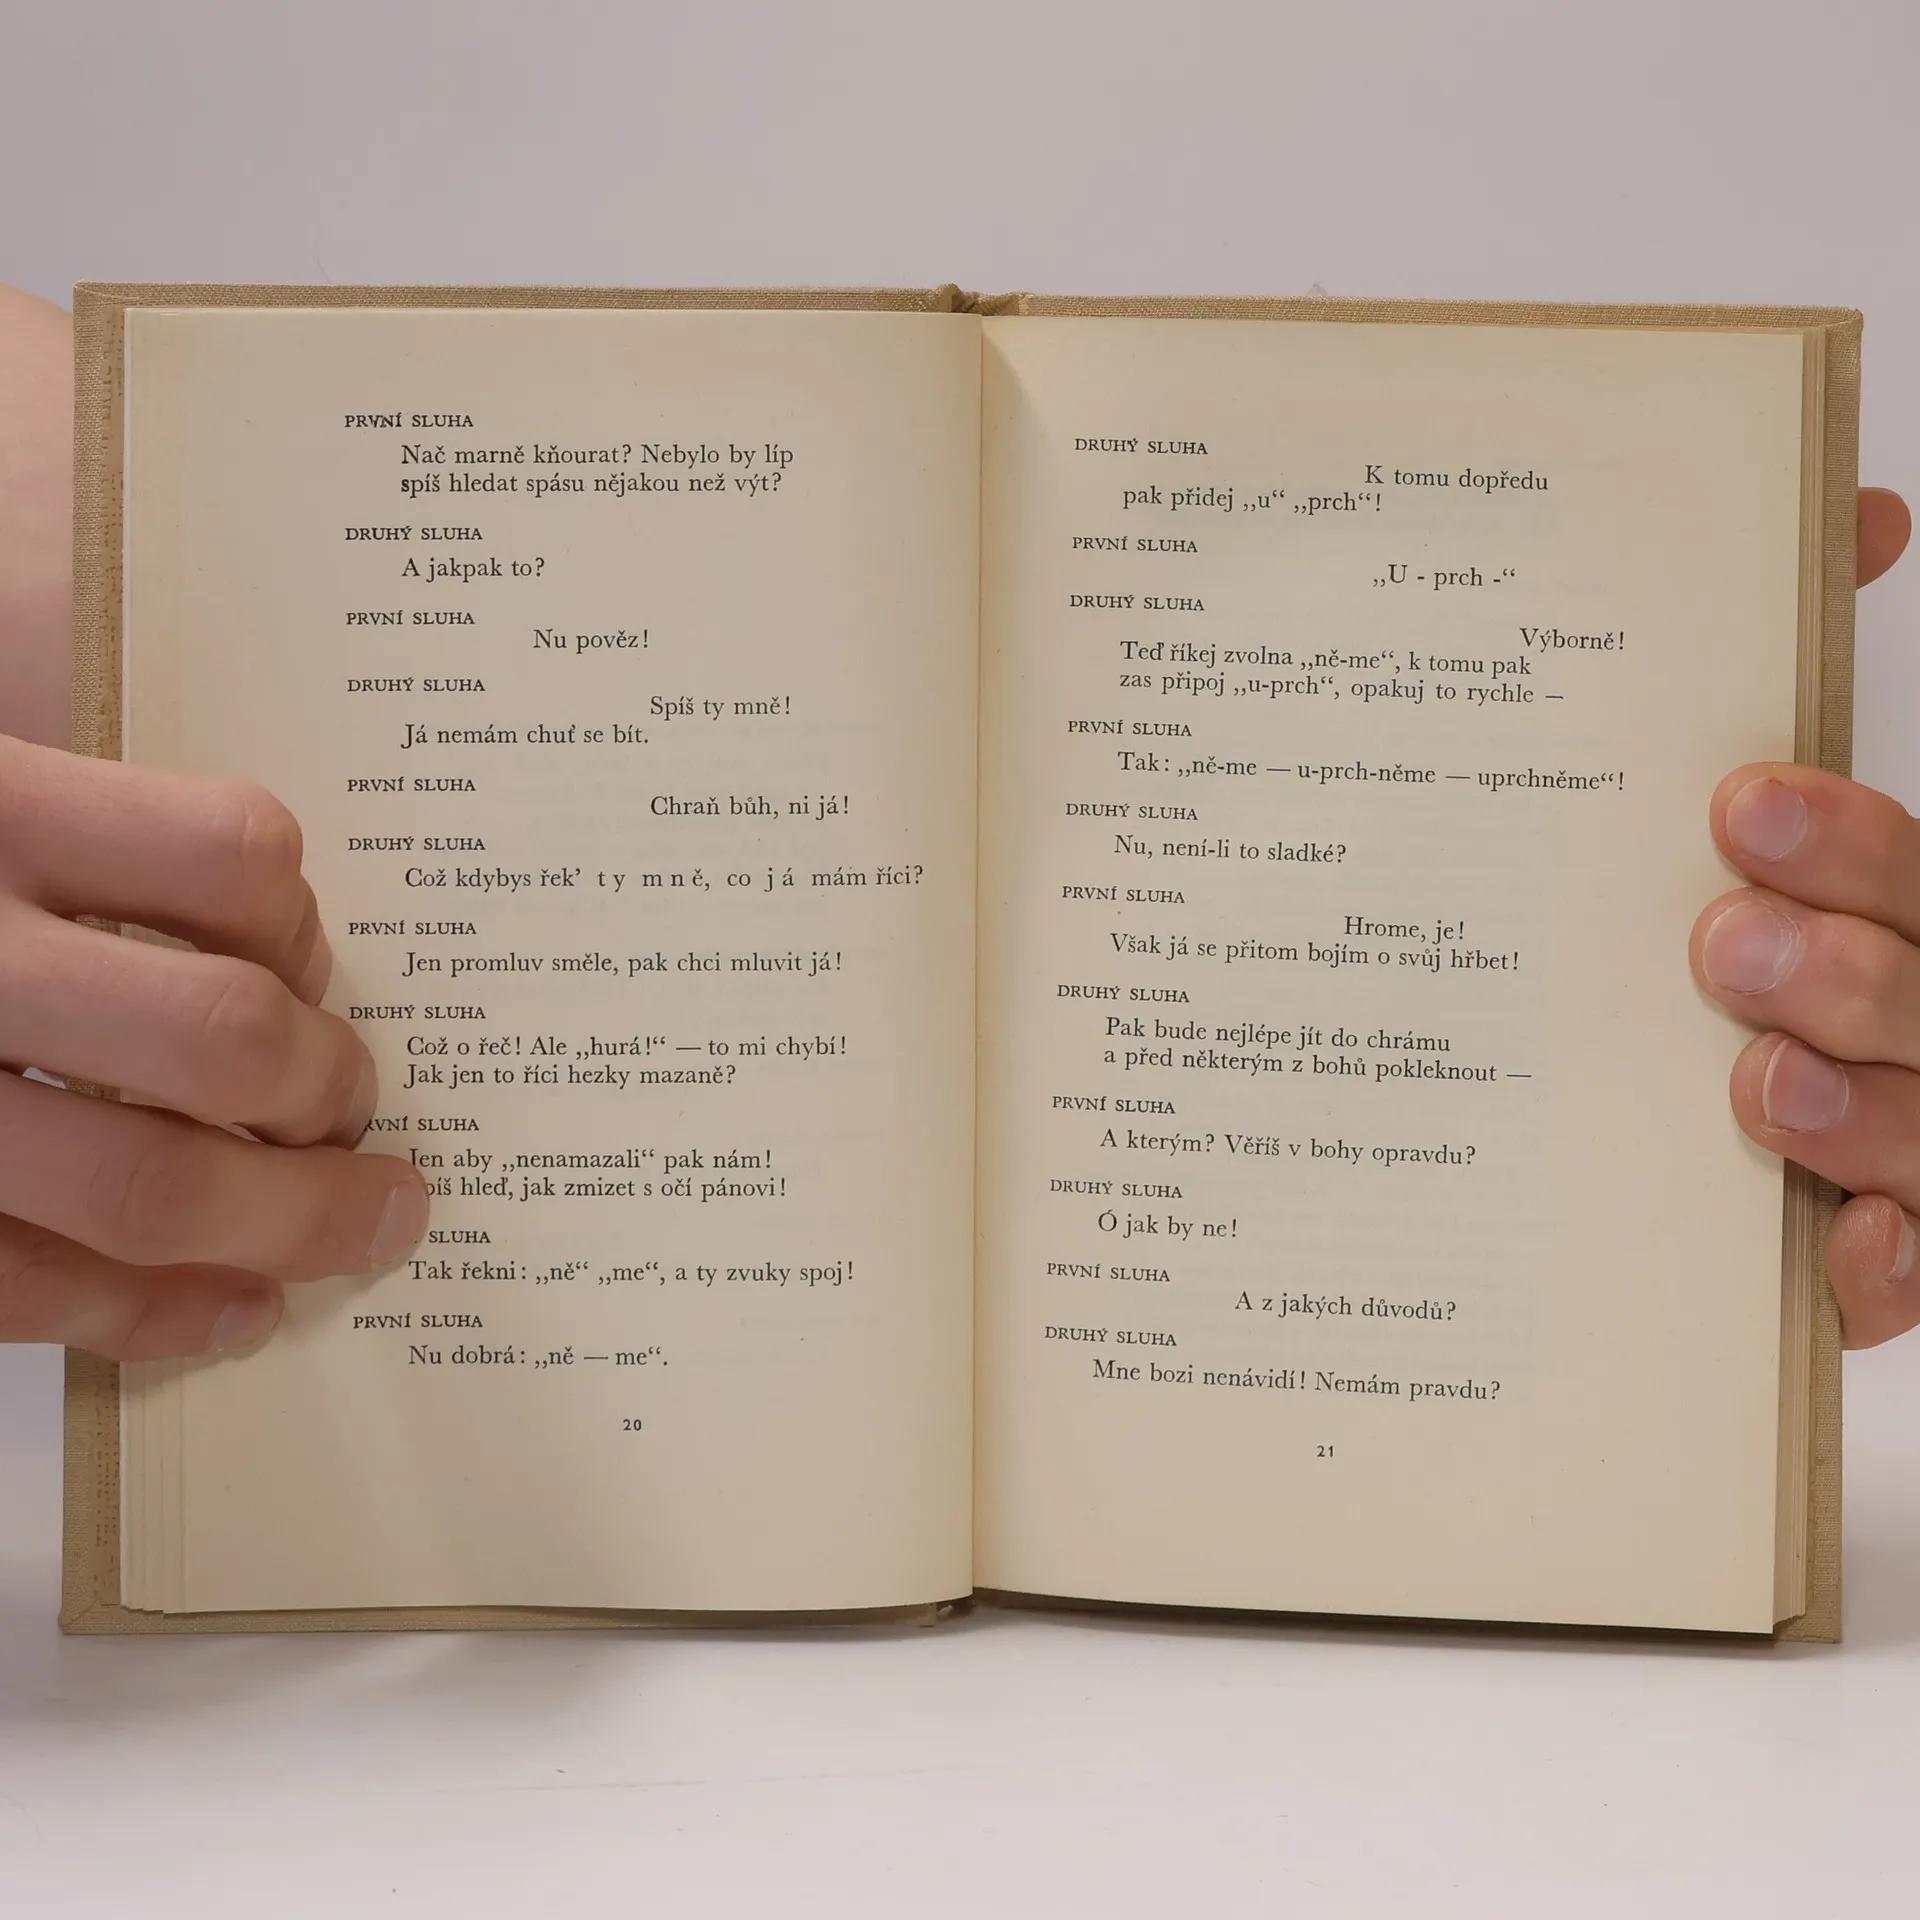 PRVNÍ SLUHA
Nač marně kňourat? Nebylo by líp
spíš hledat spásu nějakou než výt?
DRUHÝ SLUHA
A jakpak to?
PRVNÍ SLUHA
Nu pověz!
DRUHÝ SLUHA
Spíš ty mně!
Já nemám chuť se bít.
PRVNÍ SLUHA
Chraň bůh, ni já!
DRUHÝ SLUHA
Což kdybys řek’ t y m n ě, co j á mám říci?
PRVNÍ SLUHA
Jen promluv směle, pak chci mluvit já!
DRUHÝ SLUHA
Což o řeč! Ale „hurá!“ — to mi chybí!
Jak jen to říci hezky mazaně?
SLUHA
Jen aby „nenamazali“ pak nám!
hleď, jak zmizet s očí pánovi!
SLUHA
Tak řekni: „ně“ „me“, a ty zvuky spoj!
PRVNÍ SLUHA
Nu dobrá: „ně — me“.
20
DRUHÝ SLUHA
K tomu dopředu
pak přidej „u“ „prch“!
PRVNÍ SLUHA
„U - prch -“
DRUHÝ SLUHA
Výborně!
Teď říkej zvolna „ně-me“, k tomu pak
zas připoj „u-prch“, opakuj to rychle —
PRVNÍ SLUHA
Tak: „ně-me — u-prch-něme — uprchněme“!
DRUHÝ SLUHA
Nu, není-li to sladké?
PRVNÍ SLUHA
Hrome, je!
Však já se přitom bojím o svůj hřbet!
DRUHÝ SLUHA
Pak bude nejlépe jít do chrámu
a před některým z bohů pokleknout —
PRVNÍ SLUHA
A kterým? Věříš v bohy opravdu?
DRUHÝ SLUHA
Ó jak by ne!
PRVNÍ SLUHA
A z jakých důvodů?
DRUHÝ SLUHA
Mne bozi nenávidí! Nemám pravdu?
21